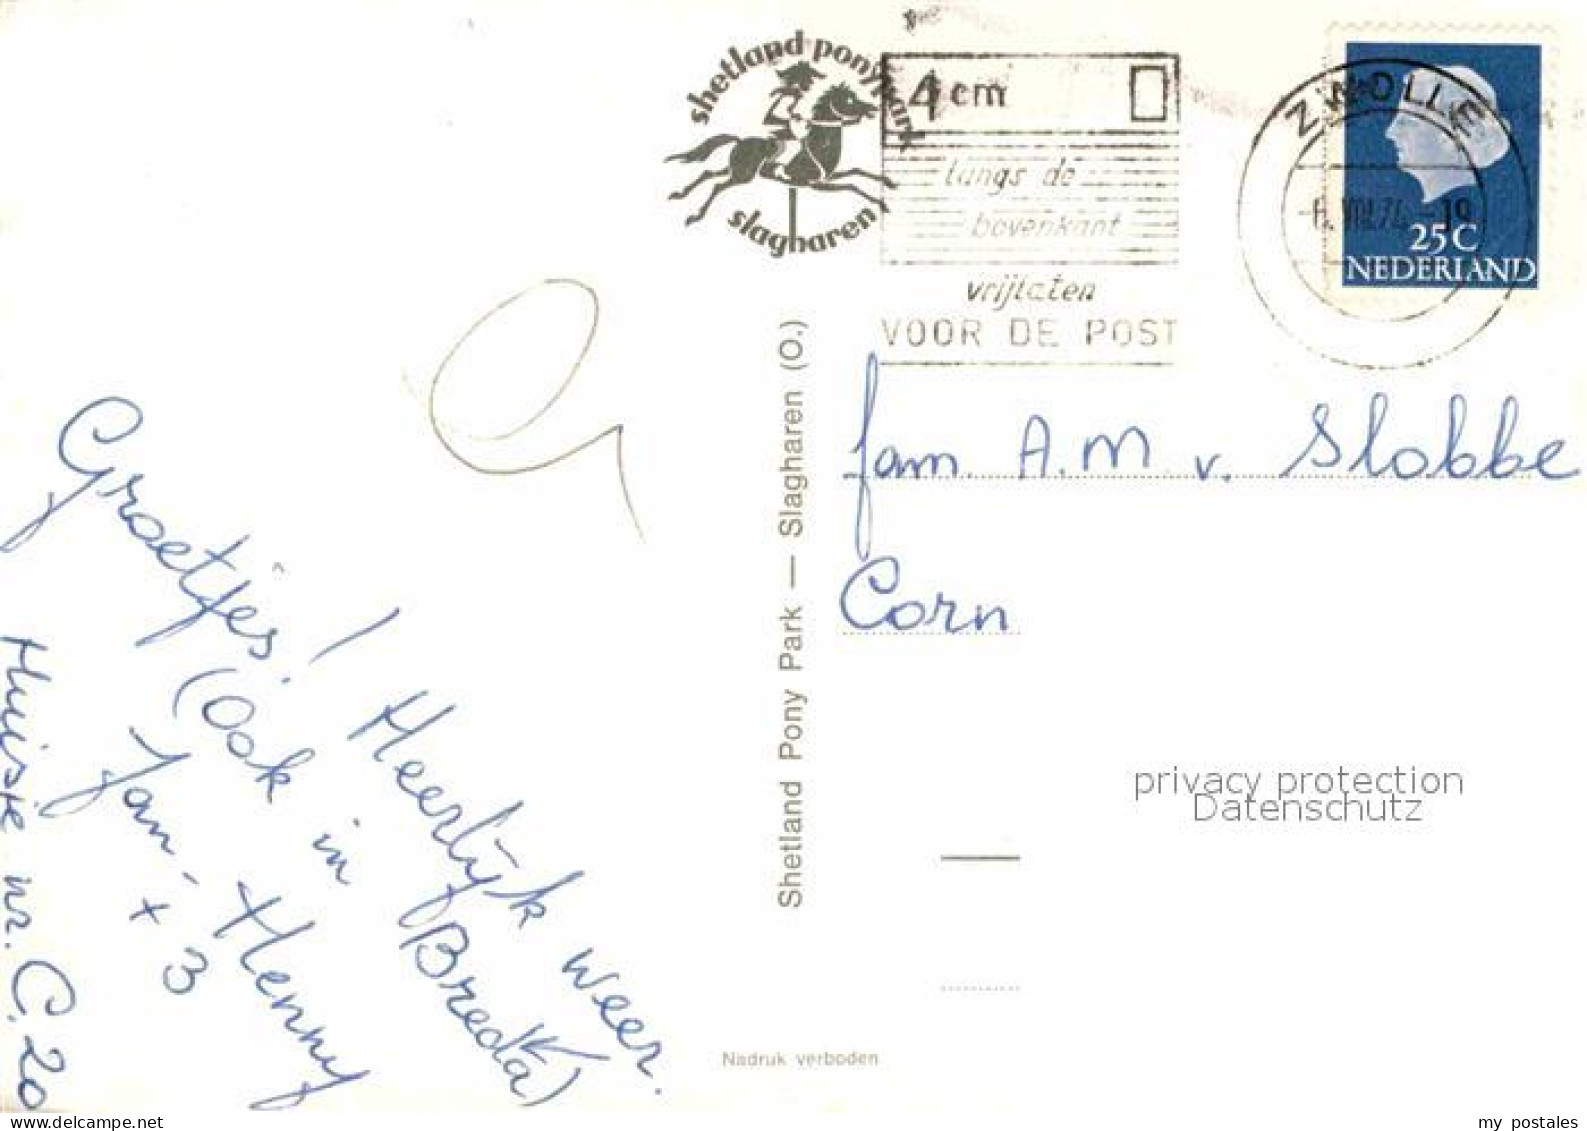 shetland ponypark
slagharen
4 cm
langs de
bovenkant
vrijlaten
VOOR DE POST
ZWOLLE
25 C
NEDERLAND
Groetjes! Heerlijk weer.
(Ook in Breda)
Jan, Henny
+ 3
Huisje nr. C.20
Shetland Pony Park — Slagharen (O.)
fam. A.M. v. Slobbe
Corn
privacy protection
Datenschutz
Nadruk verboden
my postales